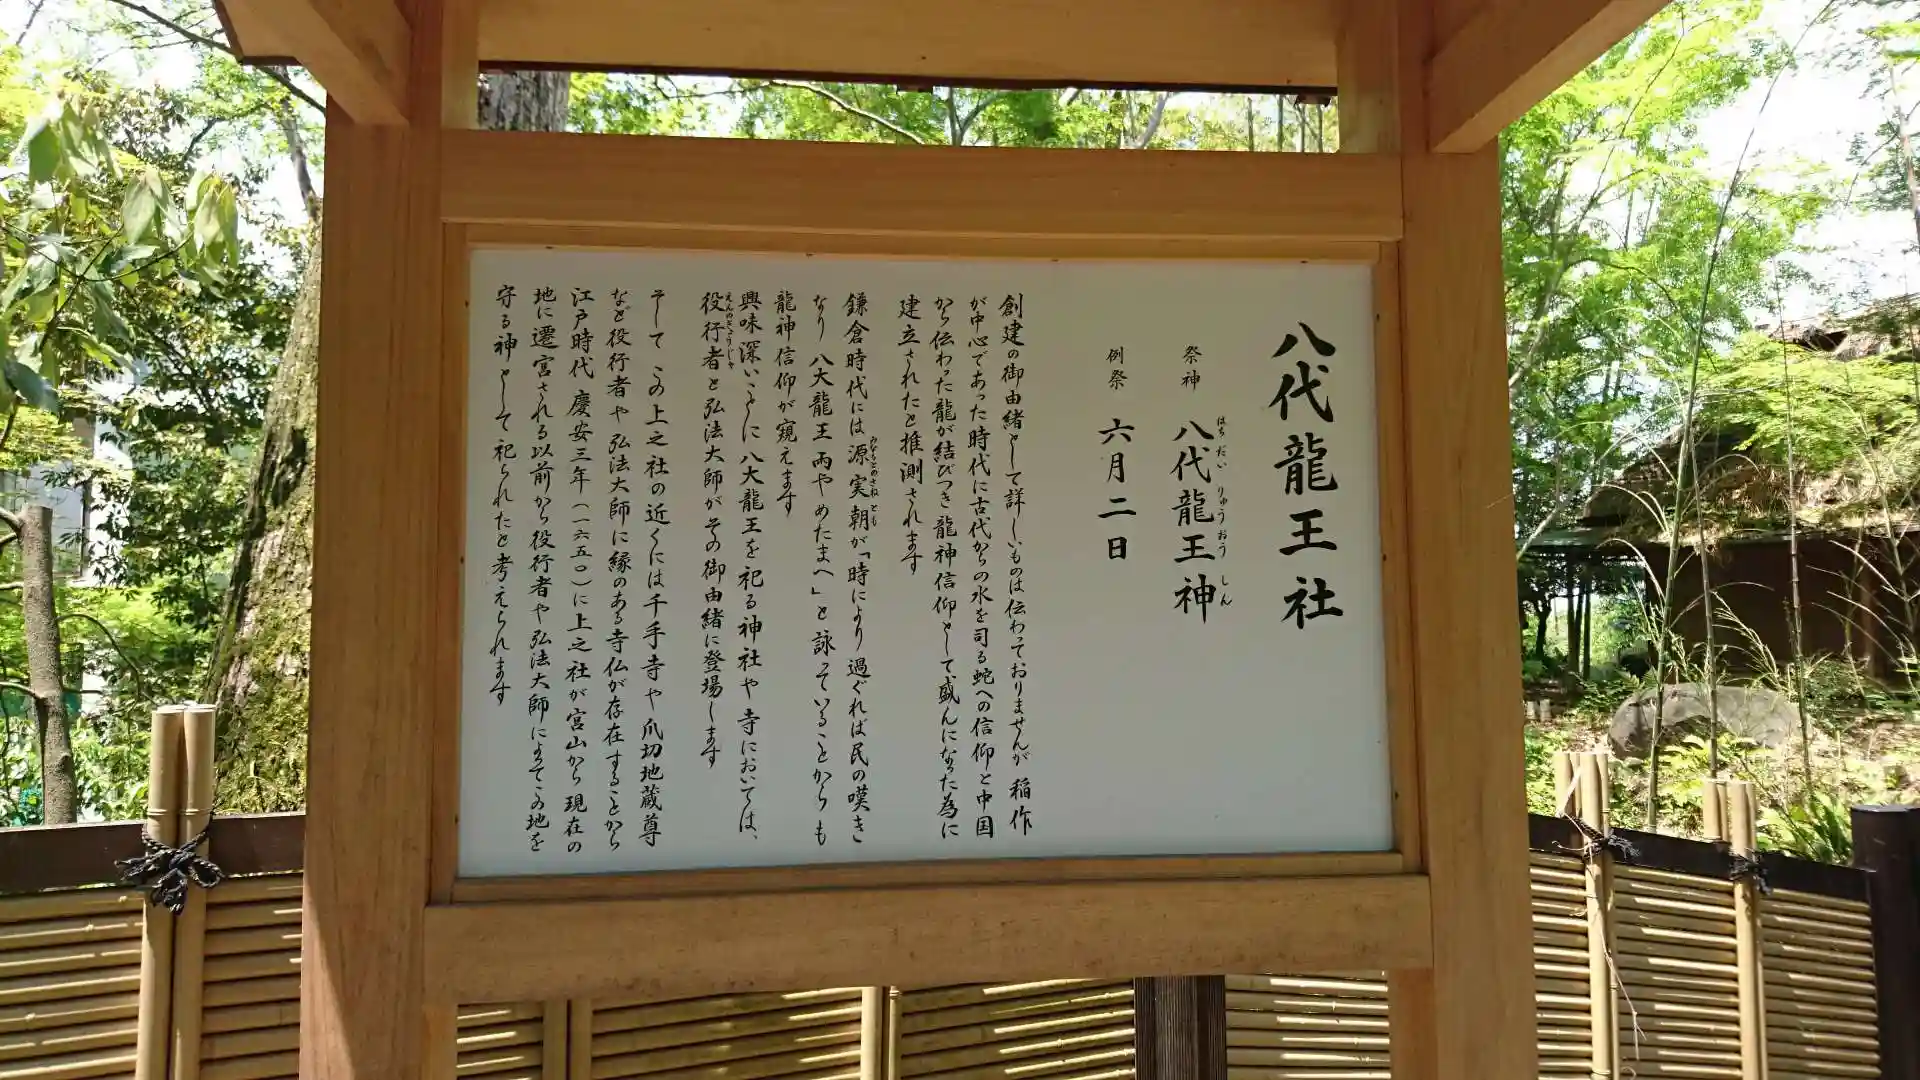 八代龍王社
祭神 八代龍王神
はちだいりゅうおうしん
例祭 六月二日
創建の御由緒として詳しいものは伝わっておりませんが 稲作
が中心であった時代に古代からの水を司る蛇への信仰と中国
から伝わった龍が結びつき龍神信仰として盛んになった為に
建立されたと推測されます
鎌倉時代には源実朝が「時により 過ぐれば民の嘆き
みなもとのさねとも
なり 八大龍王 雨やめたまへ」と詠っていることからも
龍神信仰が窺えます
興味深いことに八大龍王を祀る神社や寺においては、
役行者と弘法大師がその御由緒に登場します
えんのぎょうじゃ
そして この上之社の近くには千手寺や爪切地蔵尊
など役行者や 弘法大師に縁のある寺仏が存在することから
江戸時代 慶安三年(一六五〇)に上之社が宮山から現在の
地に遷宮される以前から役行者や弘法大師によってこの地を
守る神として祀られたと考えられます